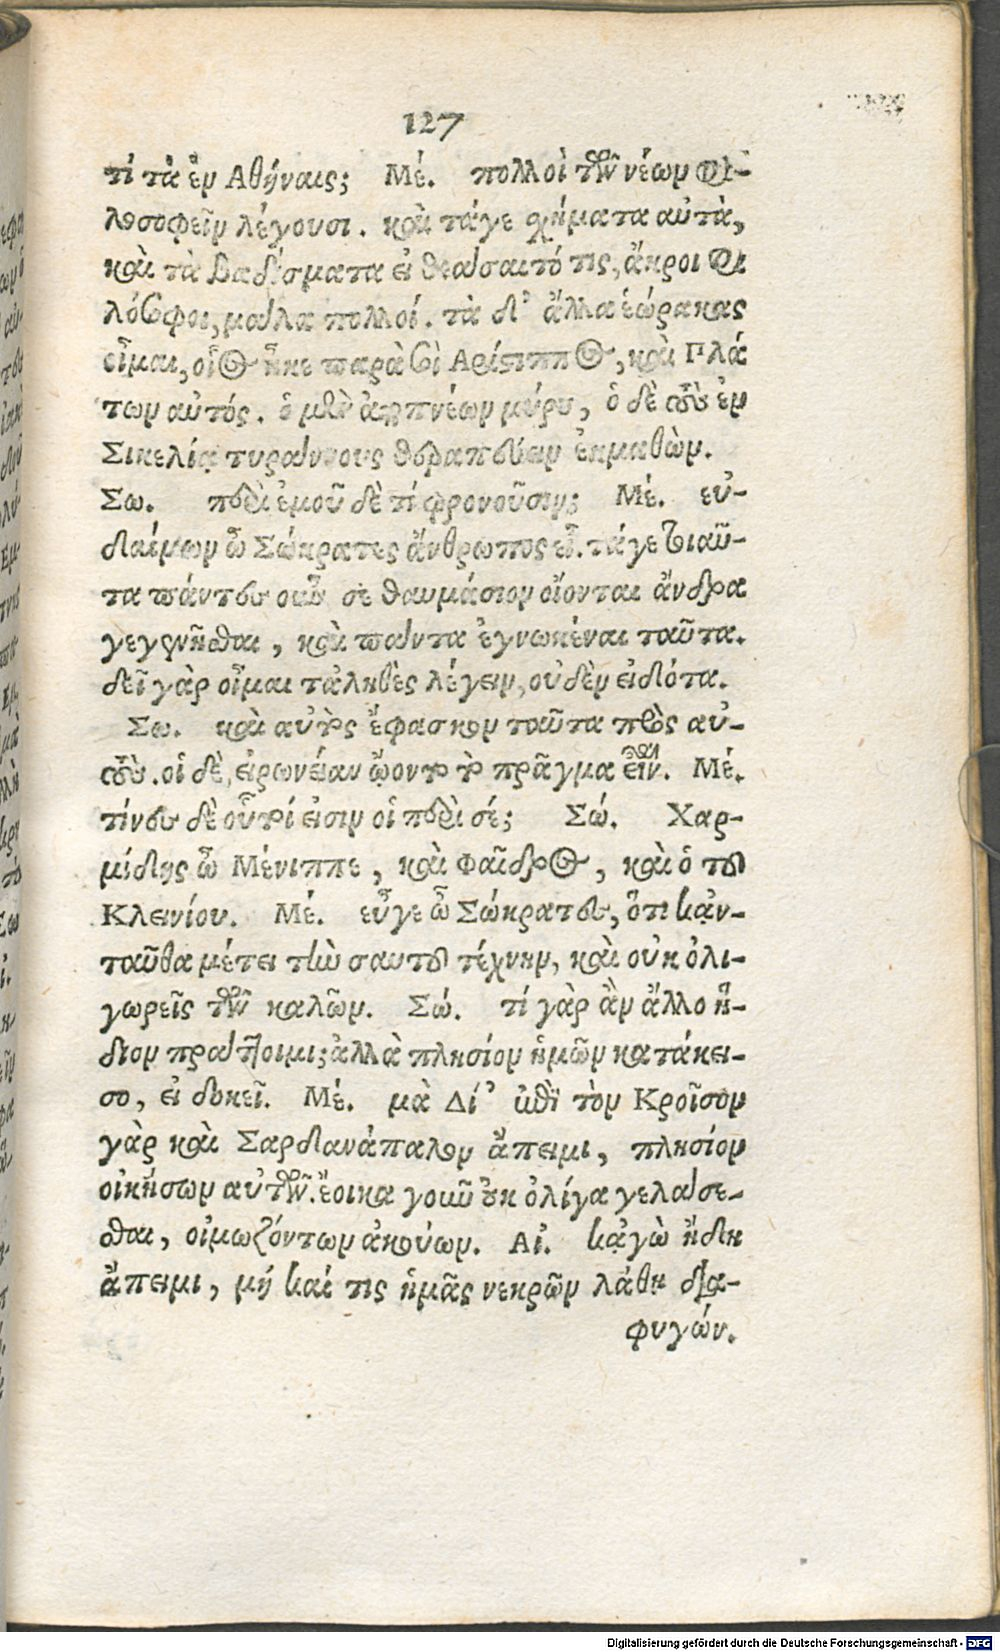 127
τί τὰ ἐν Αθήναις; Μέ. πολλοὶ τῶν νέων φι-
λοσοφεῖν λέγουσι. καὶ τάγε χήματα αὐτὰ,
καὶ τὰ βαδίσματα εἰ θεάσαιτό τις, ἄκροι φι
λόσοφοι, μάλα πολλοί. τὰ δ' ἄλλα ἑώρακας
οἶμαι, οἷος ἧκε παρὰ σὲ Αρίστιππος, καὶ Πλά
των αὐτός. ὁ μὲν ἀποπνέων μύρου, ὁ δὲ τοὺς ἐν
Σικελίᾳ τυράννους θεραπεύειν ἐκμαθὼν.
Σω. περὶ ἐμοῦ δὲ τί φρονοῦσιν; Μέ. εὐ-
δαίμων ὦ Σώκρατες ἄνθρωπος εἶ. τάγε τοιαῦ-
τα πάντες οὖν σὲ θαυμάσιον οἴονται ἄνδρα
γεγενῆσθαι, καὶ πάντα ἐγνωκέναι ταῦτα.
δεῖ γὰρ οἶμαι τἀληθὲς λέγειν, οὐδὲν εἰδότα.
Σω. καὶ αὐτὸς ἔφασκον ταῦτα πρὸς αὐ-
τοὺς. οἱ δὲ, εἰρωνείαν ᾤοντο τὸ πρᾶγμα εἶναι. Μέ.
τίνες δὲ οὗτοί εἰσιν οἱ περὶ σέ; Σώ. Χαρ-
μίδης ὦ Μένιππε, καὶ Φαῖδρος, καὶ ὁ τοῦ
Κλεινίου. Μέ. εὖγε ὦ Σώκρατες, ὅτι κᾀν-
ταῦθα μέτει τὴν σαυτοῦ τέχνην, καὶ οὐκ ὀλι-
γωρεῖς τῶν καλῶν. Σώ. τί γὰρ ἂν ἄλλο ἥ-
διον πράττοιμι; ἀλλὰ πλησίον ἡμῶν κατάκει-
σο, εἰ δοκεῖ. Μέ. μὰ Δί' ἐπὶ τὸν Κροῖσον
γὰρ καὶ Σαρδανάπαλον ἄπειμι, πλησίον
οἰκήσων αὐτῶν. ἔοικα γοῦν οὐκ ὀλίγα γελάσε-
σθαι, οἰμωζόντων ἀκούων. Αἰ. κᾀγὼ ἤδη
ἄπειμι, μή καί τις ἡμᾶς νεκρῶν λάθῃ δια-
φυγών.
Digitalisierung gefördert durch die Deutsche Forschungsgemeinschaft - DFG